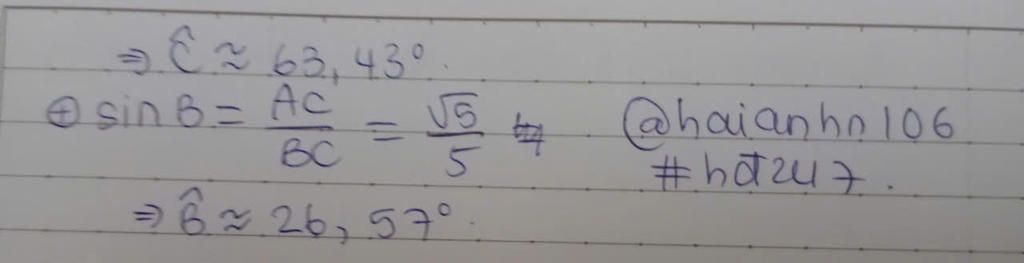 ⇒ Ĉ ≈ 63,43°.
⊕ sin B = AC/BC = √5/5
@haianhn106
#hdt247.
⇒ B̂ ≈ 26,57°.